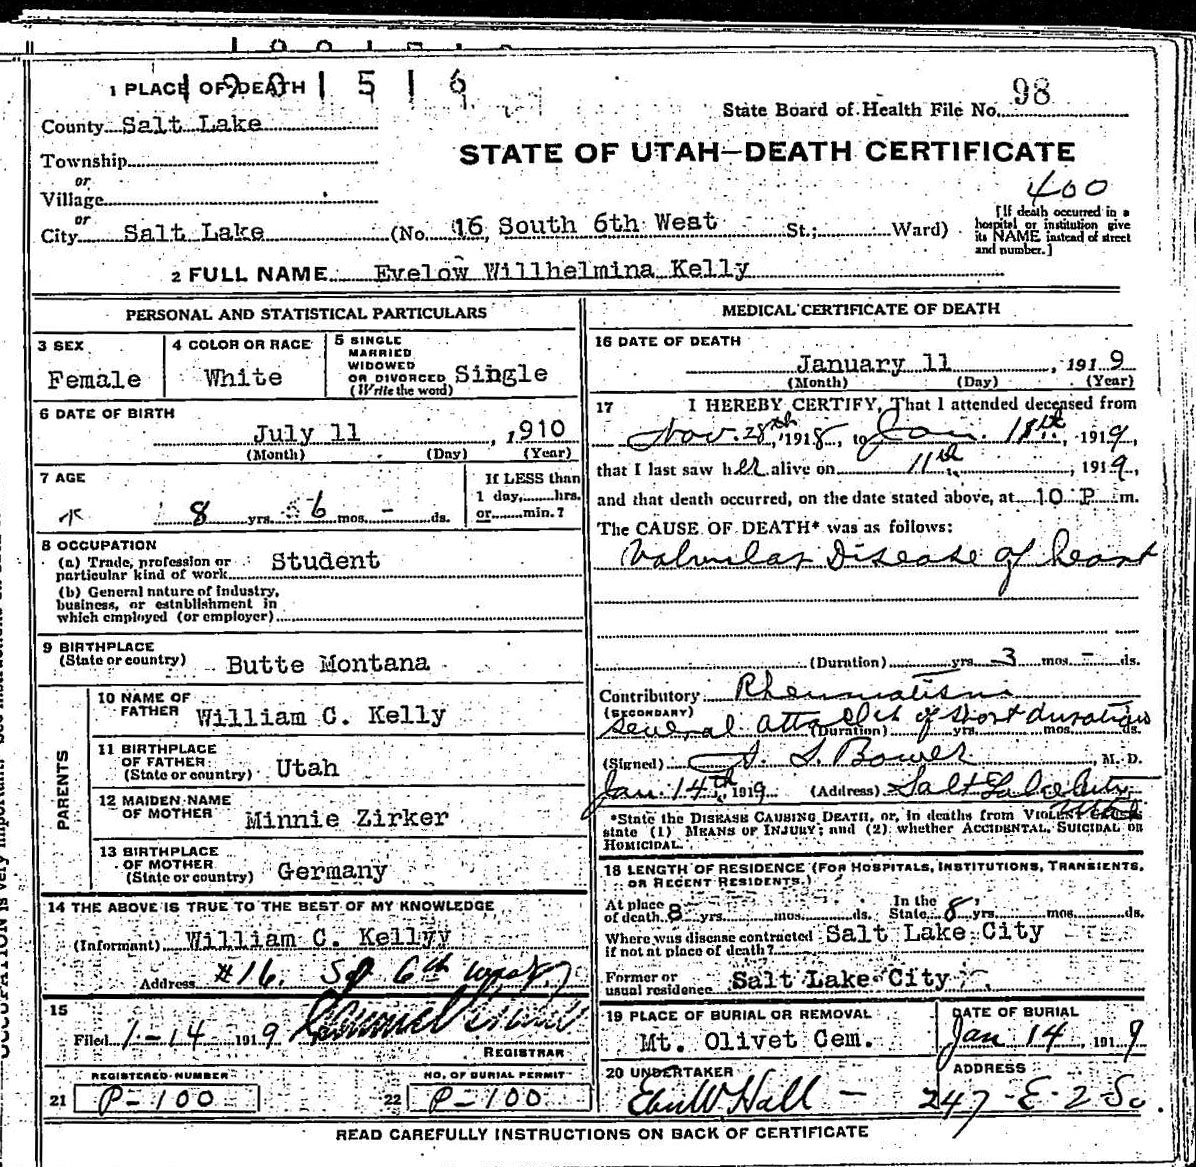 1 PLACE OF DEATH
1901516
State Board of Health File No. 98
County Salt Lake
STATE OF UTAH—DEATH CERTIFICATE
Township
or
400
Village
or
City Salt Lake (No. 16, South 6th West St.; Ward)
[If death occurred in a hospital or institution give its NAME instead of street and number.]
2 FULL NAME Evelow Willhelmina Kelly
PERSONAL AND STATISTICAL PARTICULARS
3 SEX
Female
4 COLOR OR RACE
White
5 SINGLE
MARRIED
WIDOWED
OR DIVORCED
(Write the word)
Single
6 DATE OF BIRTH
July 11, 1910
(Month) (Day) (Year)
7 AGE
8 yrs. 6 mos. - ds.
If LESS than
1 day, hrs.
or min.?
8 OCCUPATION
(a) Trade, profession or
particular kind of work Student
(b) General nature of industry,
business, or establishment in
which employed (or employer)
9 BIRTHPLACE
(State or country) Butte Montana
PARENTS
10 NAME OF
FATHER William C. Kelly
11 BIRTHPLACE
OF FATHER
(State or country) Utah
12 MAIDEN NAME
OF MOTHER Minnie Zirker
13 BIRTHPLACE
OF MOTHER
(State or country) Germany
14 THE ABOVE IS TRUE TO THE BEST OF MY KNOWLEDGE
(Informant) William C. Kellyy
Address #16. So 6th West
15
Filed 1-14 1919
REGISTRAR
REGISTERED NUMBER
21 P-100
NO. OF BURIAL PERMIT
22 P-100
MEDICAL CERTIFICATE OF DEATH
16 DATE OF DEATH
January 11, 1919
(Month) (Day) (Year)
17 I HEREBY CERTIFY, That I attended deceased from
Nov. 28th, 1918, to Jan. 11th, 1919,
that I last saw her alive on 11th, 1919,
and that death occurred, on the date stated above, at 10 P. m.
The CAUSE OF DEATH* was as follows:
Valvular Disease of heart
(Duration) yrs. 3 mos. - ds.
Contributory Rheumatism
(SECONDARY)
several attacks of short duration
(Duration) yrs. mos. ds.
(Signed) Bower M. D.
Jan. 14th, 1919 (Address) Salt Lake City,
Utah
*State the DISEASE CAUSING DEATH, or, in deaths from VIOLENT CAUSES
state (1) MEANS OF INJURY; and (2) whether ACCIDENTAL, SUICIDAL OR
HOMICIDAL.
18 LENGTH OF RESIDENCE (FOR HOSPITALS, INSTITUTIONS, TRANSIENTS,
OR RECENT RESIDENTS.)
At place
of death 8 yrs. mos. ds.
In the
State 8 yrs. mos. ds.
Where was disease contracted
if not at place of death? Salt Lake City
Former or
usual residence Salt Lake City
19 PLACE OF BURIAL OR REMOVAL
Mt. Olivet Cem.
DATE OF BURIAL
Jan 14, 1919
20 UNDERTAKER
Eber W Hall —
ADDRESS
247-E-2 So.
READ CAREFULLY INSTRUCTIONS ON BACK OF CERTIFICATE